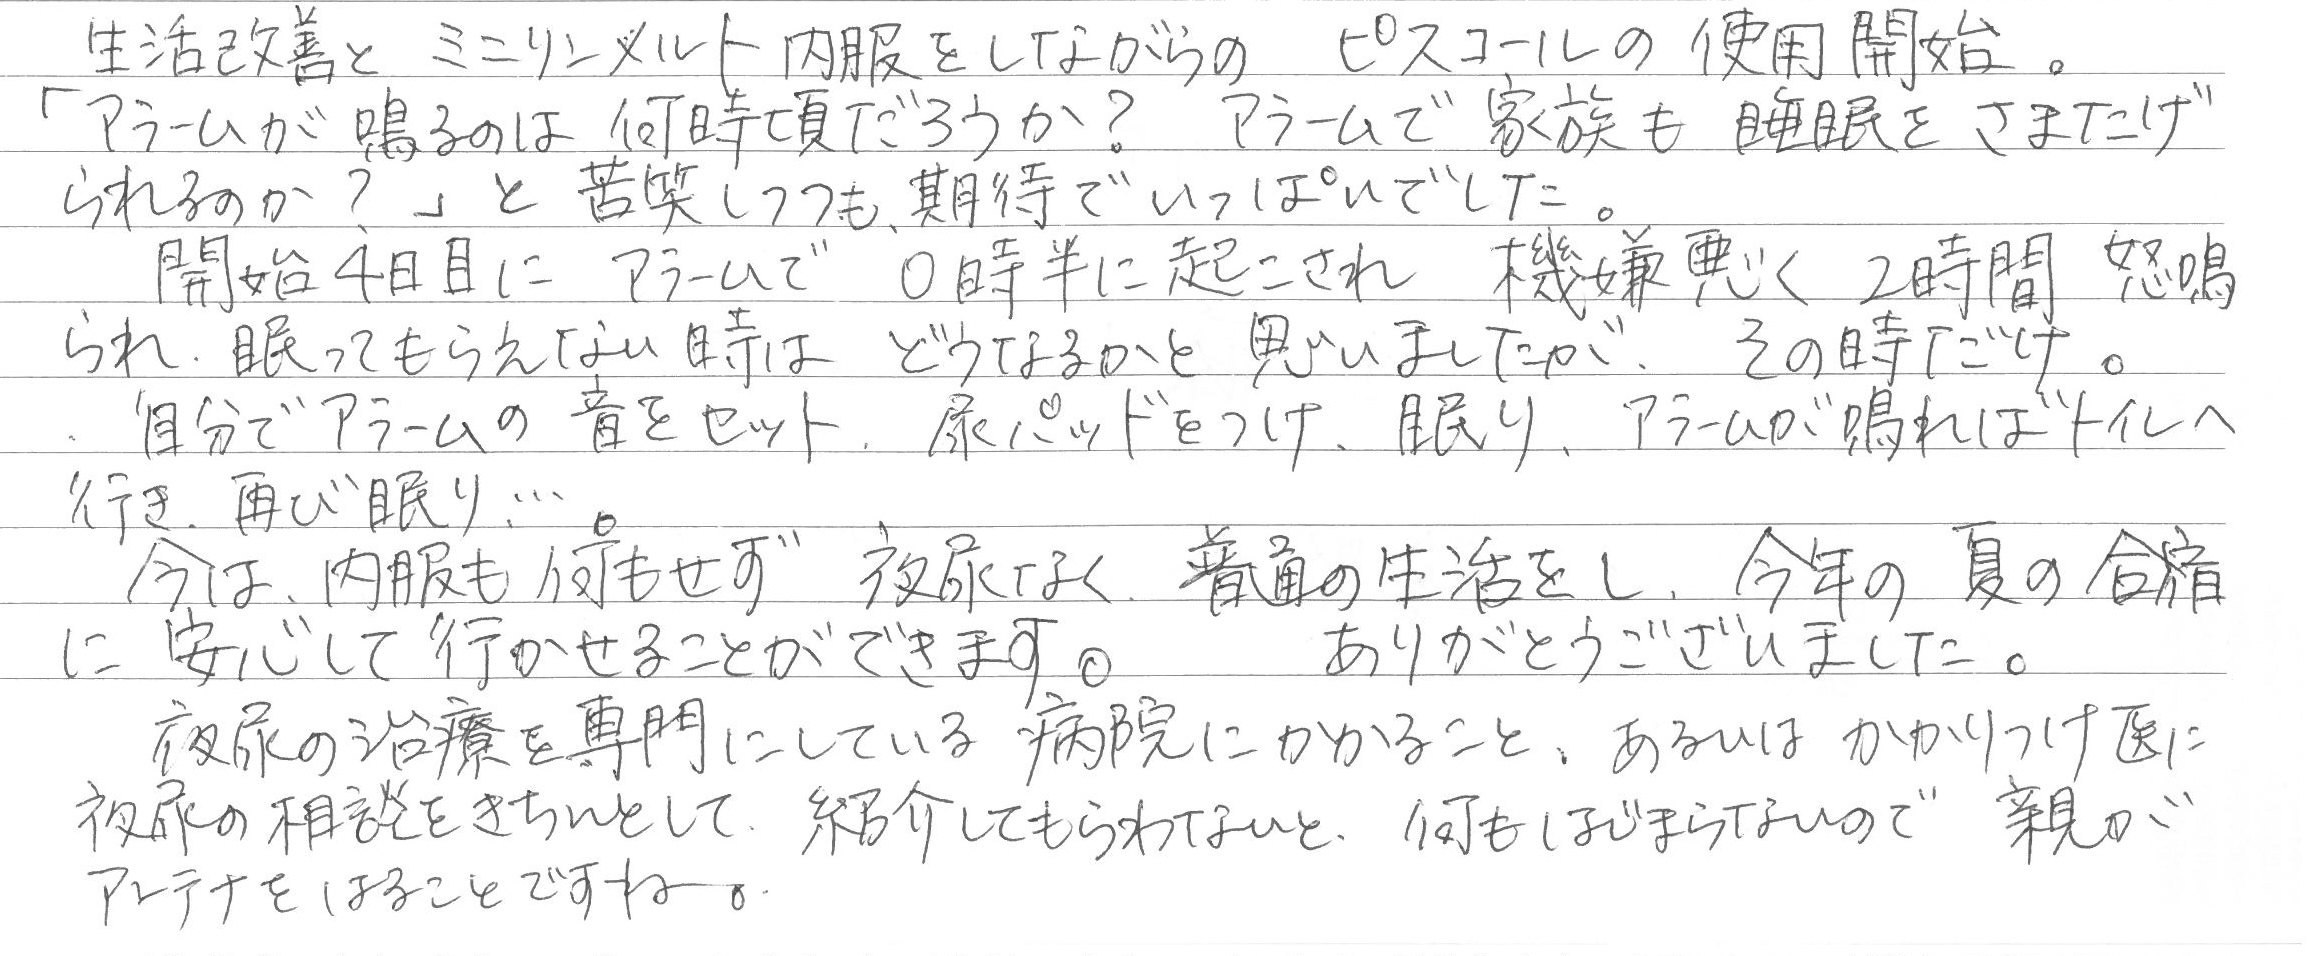 生活改善と ミニリンメルト内服をしながらの ピスコールの 使用開始。
「アラームが鳴るのは 何時頃だろうか? アラームで 家族も 睡眠を さまたげ
られるのか?」と 苦笑しつつも、期待でいっぱいでした。
開始4日目に アラームで 0時半に起こされ 機嫌悪く 2時間 怒鳴
られ、眠ってもらえない時は どうなるかと 思いましたが、その時だけ。
自分でアラームの 音をセット、尿パッドをつけ、眠り、アラームが鳴ればトイレへ
行き、再び眠り…。
今は、内服も何もせず 夜尿なく、普通の生活をし、今年の 夏の合宿
に 安心して行かせることができます。 ありがとうございました。
夜尿の治療を専門にしている 病院にかかること、あるいは かかりつけ医に
夜尿の相談をきちんとして、紹介してもらわないと、何もはじまらないので 親が
アンテナを はることですねー。